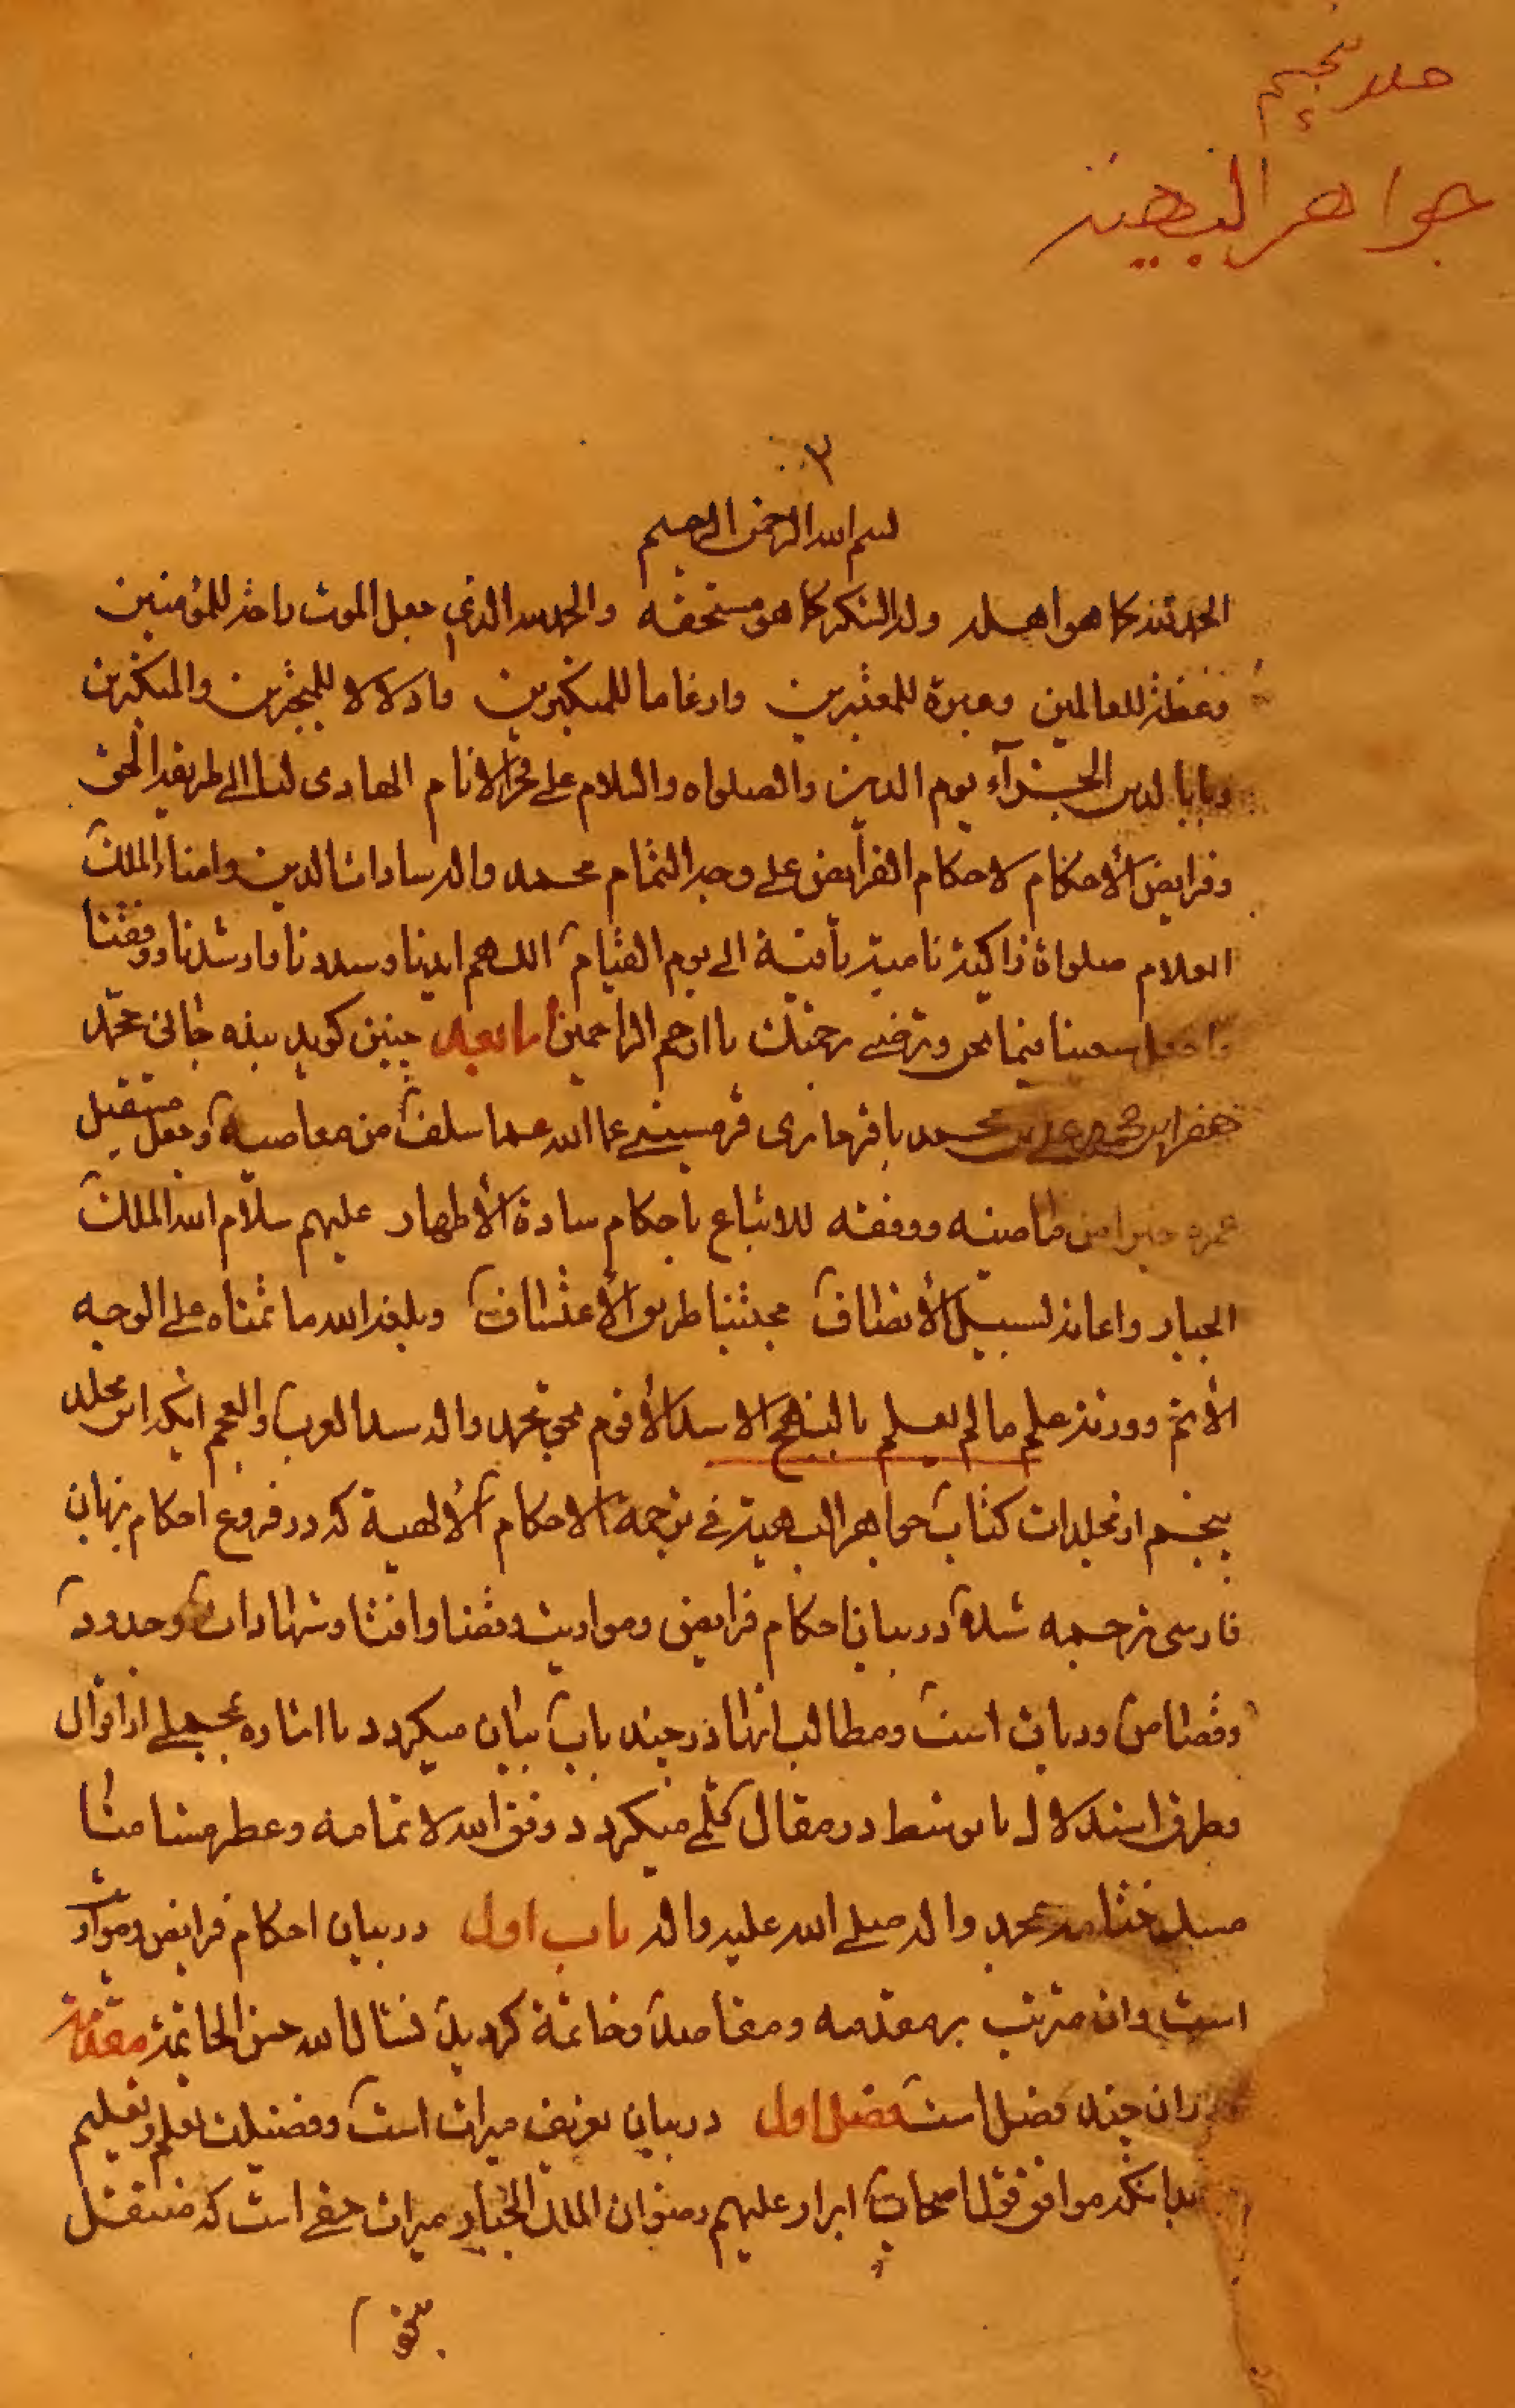 جلد پنجم
جواهر البهیة
۲
بسم الله الرحمن الرحیم
الحمد لله کما هو اهله وله الشکر کما هو مستحقه والحمد لله الذي جعل الموت راحة للمؤمنین
وعظة للعالمین وعبرة للمعتبرین وارغاما للمتکبرین واذلالا للمتجبرین والمنکرین
الجزآء یوم الدین والصلواه والسلام علی فخر الانام الهادی لنا الی طریقه الحق
وفرایض الأحکام لاحکام الفرآیض علی وجه التمام محمد واله سادات الدین وامناء الملک
العلام صلواة زاکیة نامیة باقیة الی یوم القیام اللهم ایدنا وسددنا وارشدنا ووفقنا
واجعل سعینا فیما تحب وترضی برحمتک یا ارحم الراحمین اما بعد چنین گوید بنده جانی محمد
جعفر ابن محمد علی بن محمد باقر قرمیسینی عفا الله عما سلف من معاصیه وجعل مستقبل
عمره خیرا من ماضیه ووفقه للاتباع باحکام سادة الأطهار علیهم سلام الله الملک
الجبار واعانه لسبیل الأنصاف مجتنبا طریق الأعتساف وبلغه الله ما تمناه علی الوجه
الأتم ورزقه علم ما لم یعلم بالنهج الاسد الأقوم بحق محمد واله سید العرب والعجم اینکه این مجلد
پنجم از مجلدات کتاب جواهر البهیة فی ترجمة الاحکام الألهیة که در فروع احکام بزبان
فارسی ترجمه شده در بیان احکام فرایض ومواریث وقضا وافتا وشهادات وحدود
وقصاص ودیات است ومطالب انها در چند باب بیان میگردد با اشاره مجملی از اقوال
وطرق استدلال با توسط در مقال تکلم میگردد وفق الله لاتمامه وعطر مشامنا
مسک ختامه بمحمد واله صلی الله علیه واله باب اول در بیان احکام فرایض ومواریث
است وان مترتب بر مقدمه ومقاصد وخاتمة گردید نسئال الله حسن الخاتمة مقدمه
دران چند فصل است فصل اول در بیان تعریف میراث است وفضیلت تعلم وتعلیم
بدانکه موافق قول اصحاب ابرار علیهم رضوان الملک الجبار میراث حقی است که منتقل